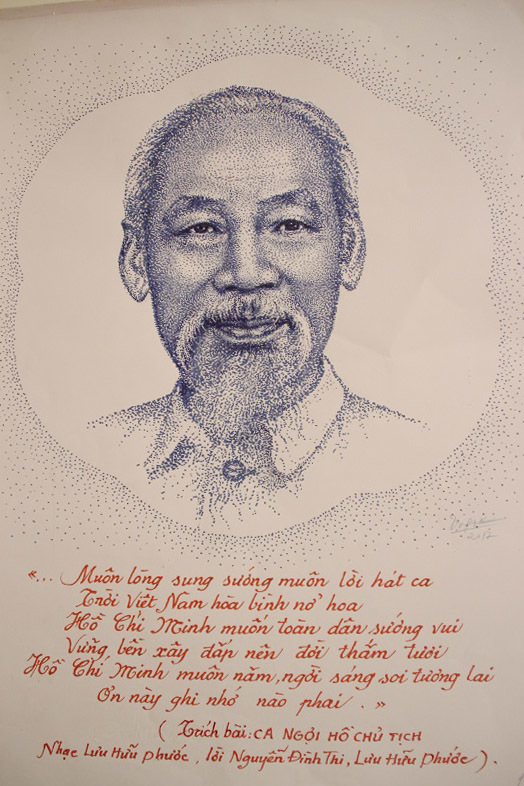 2017
«... Muôn lòng sung sướng muôn lời hát ca
Trời Việt Nam hòa bình nở hoa
Hồ Chí Minh muốn toàn dân sướng vui
Vững bền xây đắp nên đời thắm tươi
Hồ Chí Minh muôn năm, ngời sáng soi tương lai
Ơn này ghi nhớ nào phai . »
( Trích bài: CA NGỢI HỒ CHỦ TỊCH
Nhạc Lưu Hữu Phước, lời Nguyễn Đình Thi, Lưu Hữu Phước ) .